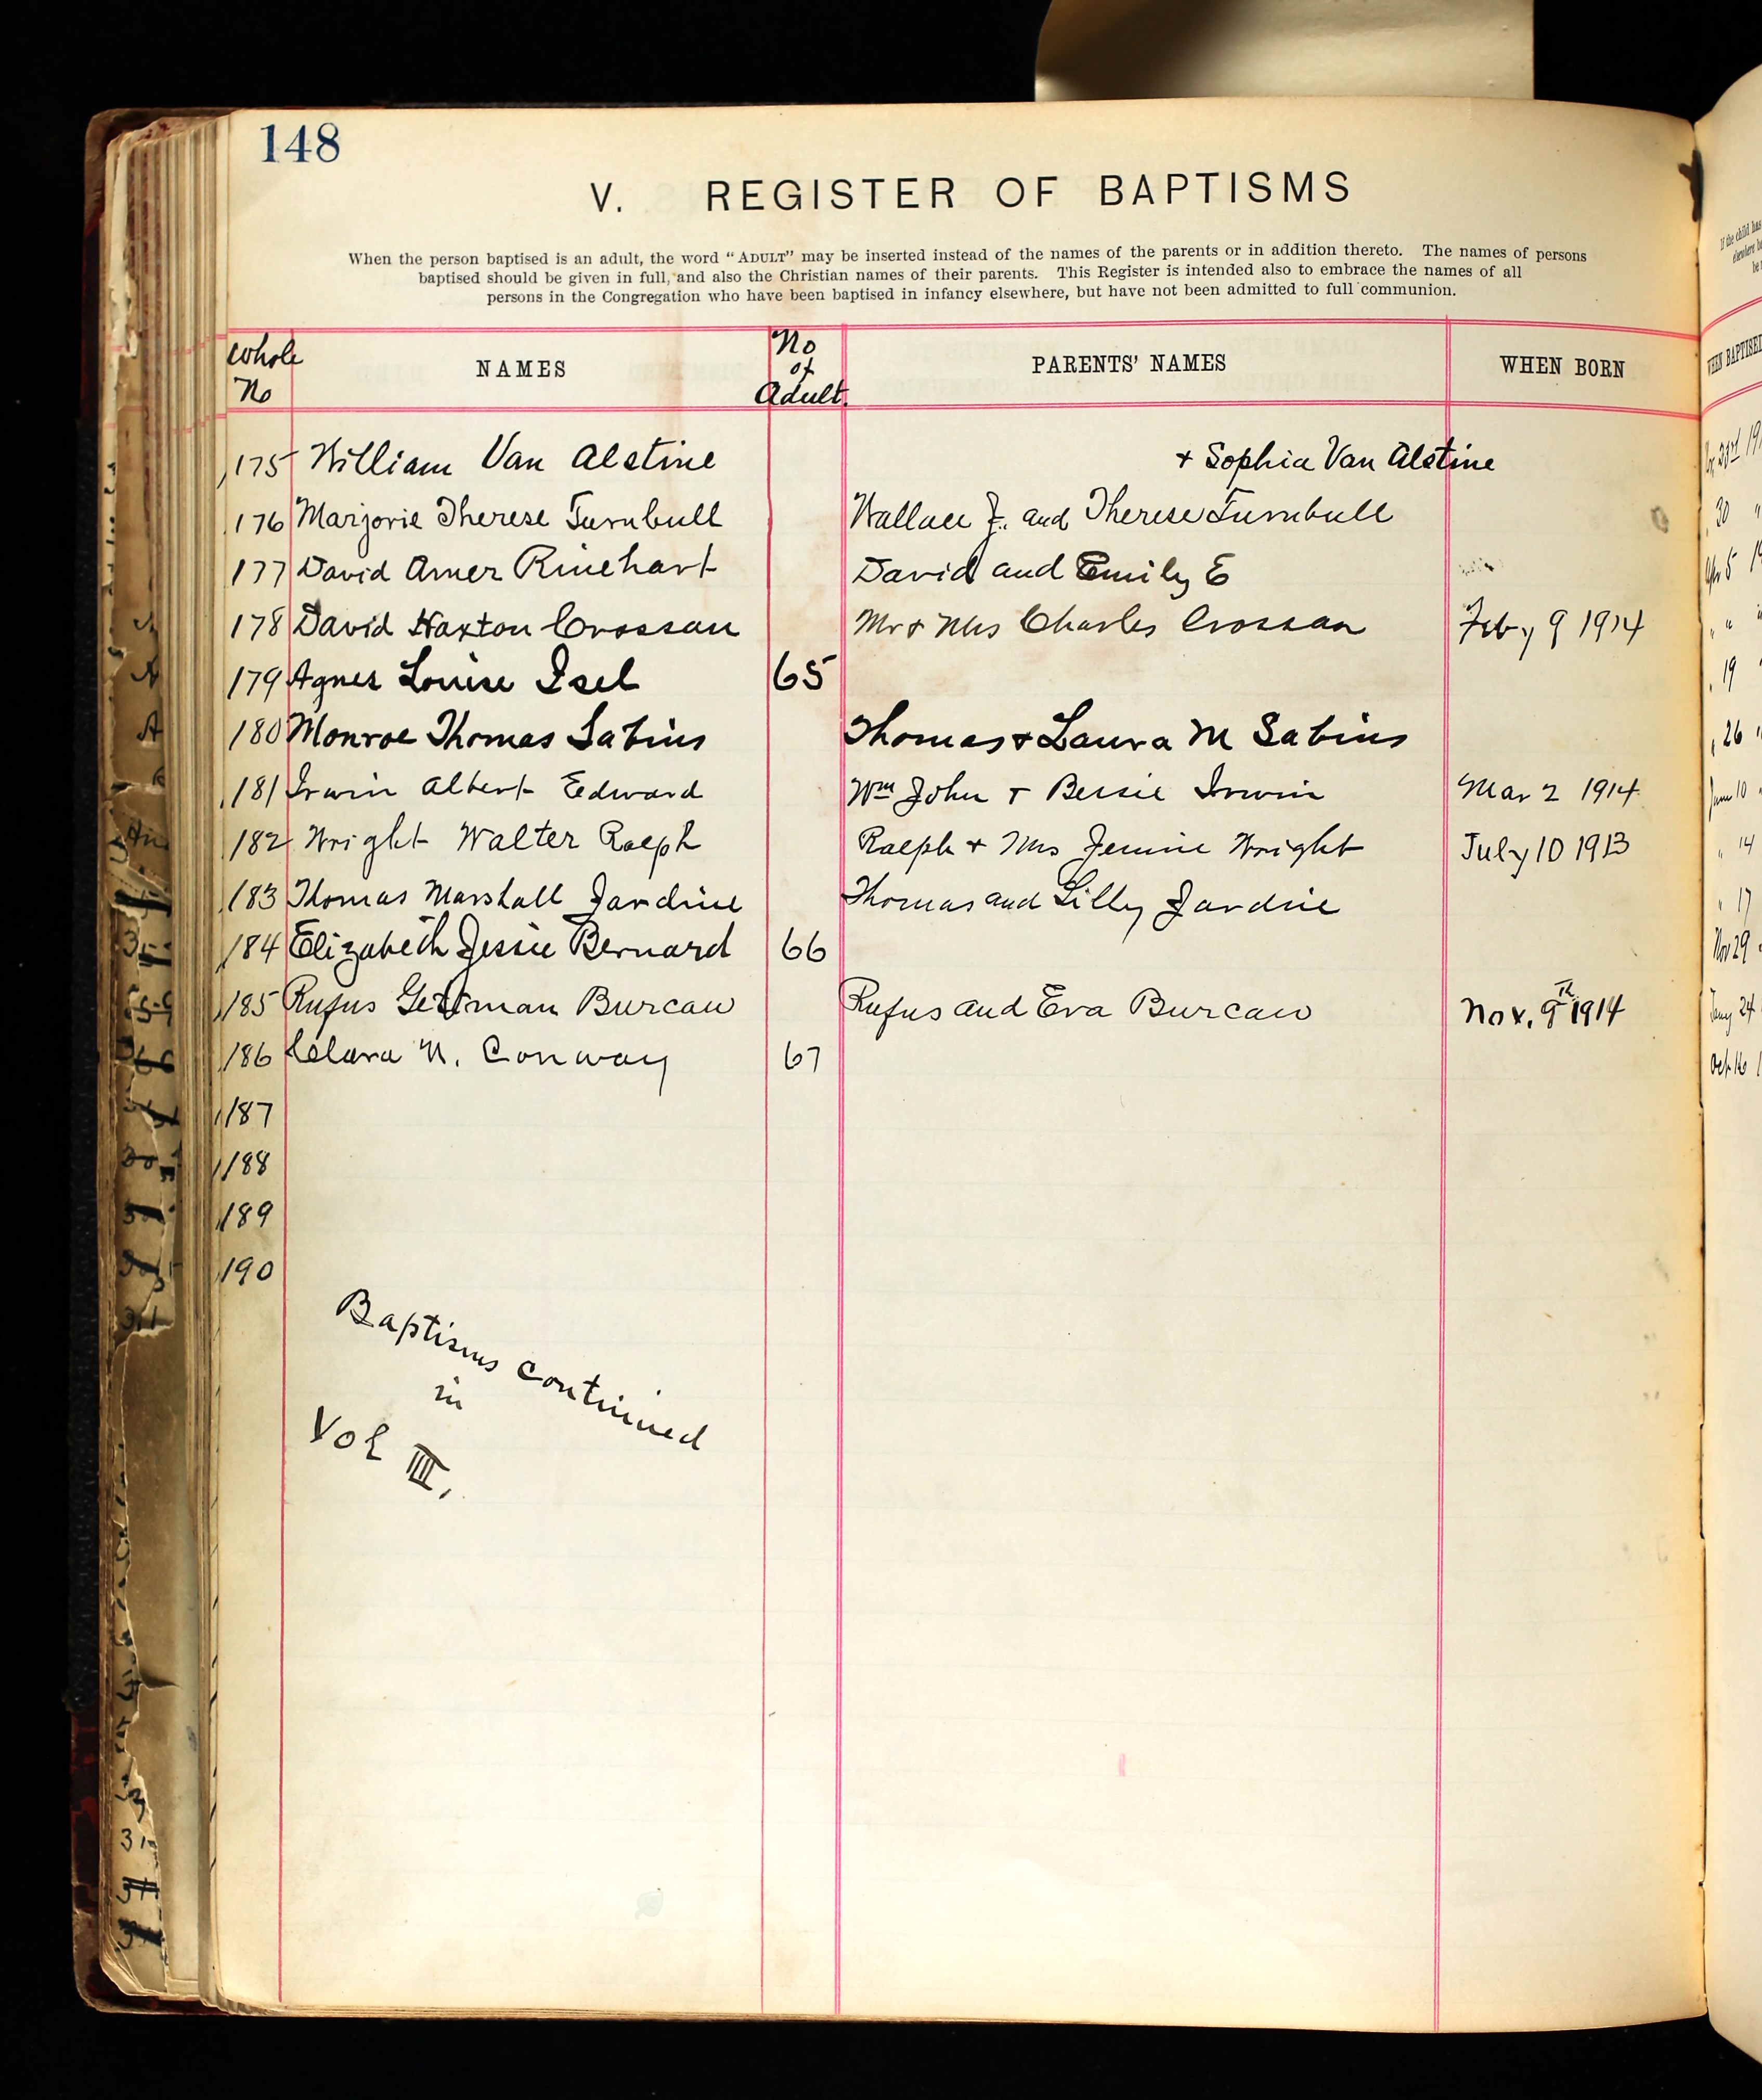 148
V. REGISTER OF BAPTISMS
When the person baptised is an adult, the word "ADULT" may be inserted instead of the names of the parents or in addition thereto. The names of persons
baptised should be given in full, and also the Christian names of their parents. This Register is intended also to embrace the names of all
persons in the Congregation who have been baptised in infancy elsewhere, but have not been admitted to full communion.
Whole No NAMES No of Adult. PARENTS' NAMES WHEN BORN
175 William Van Alstine + Sophia Van Alstine
176 Marjorie Therese Turnbull Wallace J. and Therese Turnbull
177 David Amer Rinehart David and Emily E
178 David Haxton Crossan Mr & Mrs Charles Crossan Feby 9 1914
179 Agnes Louise Isel 65
180 Monroe Thomas Sabins Thomas & Laura M Sabins
181 Irwin Albert Edward Wm John + Bessie Irwin Mar 2 1914
182 Wright Walter Ralph Ralph + Mrs Jennie Wright July 10 1913
183 Thomas Marshall Jardine Thomas and Lilly Jardine
184 Elizabeth Jessie Bernard 66
185 Rufus Gettman Burcaw Rufus and Eva Burcaw Nov. 9th 1914
186 Clara N. Conway 67
187
188
189
190
Baptisms continued
in
Vol III.